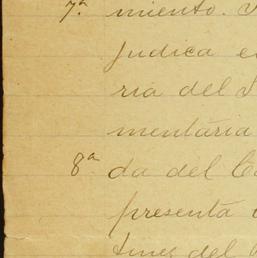 7.ª miento.
judica
ria del
mentaria
8ª da del
presenta
del